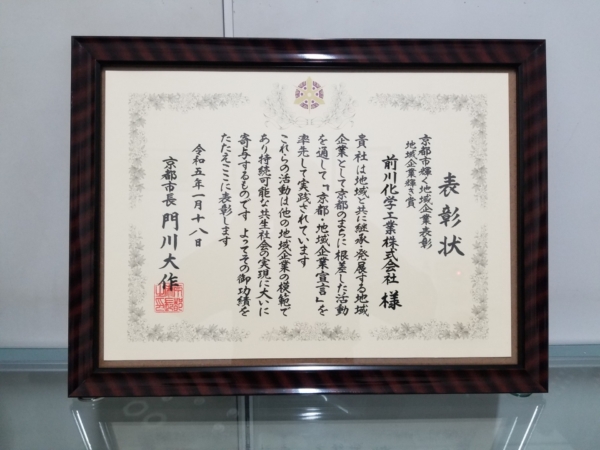 表彰状
京都市輝く地域企業表彰
地域企業輝き賞
前川化学工業株式会社 様
貴社は地域と共に継承・発展する地域
企業として京都のまちに根差した活動
を通して『京都・地域企業宣言』を
率先して実践されています
これらの活動は他の地域企業の模範で
あり持続可能な共生社会の実現に大いに
寄与するものです よってその御功績を
たたえここに表彰します
令和五年一月十八日
京都市長 門川大作